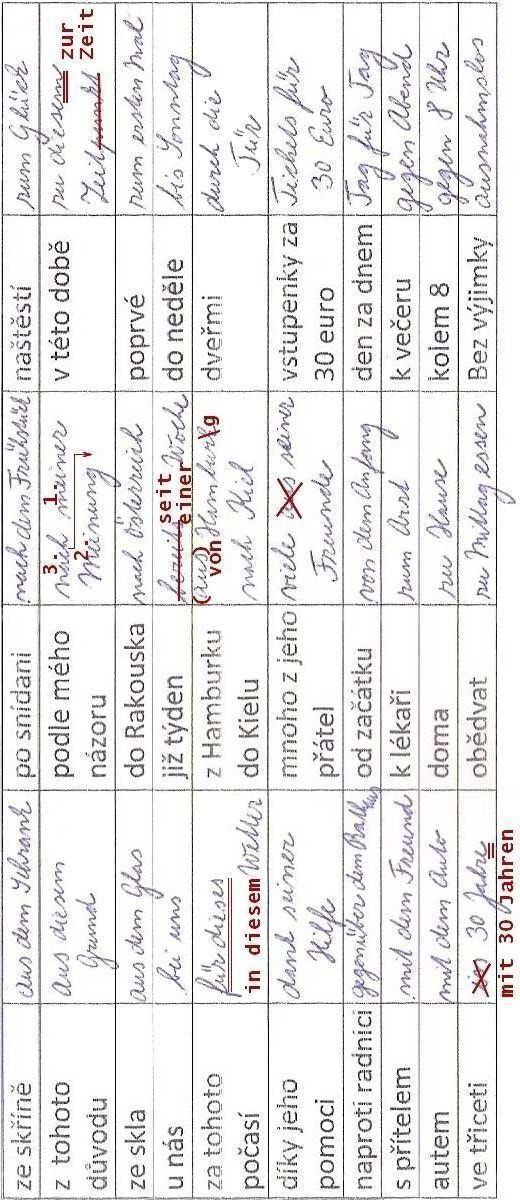 ze skříně aus dem Schrank po snídani nach dem Frühstück naštěstí zum Glück
z tohoto aus diesem podle mého 3. nach 1. meiner v této době zu diesem zur
důvodu Grund názoru 2. Meinung Zeitpunkt Zeit
ze skla aus dem Glas do Rakouska nach Österreich poprvé zum ersten Mal
u nás bei uns již týden bereits Woche seit einer do neděle bis Sonntag
za tohoto für dieses z Hamburku (aus) von Hamburk g dveřmi durch die
počasí in diesem Wetter do Kielu nach Kiel Tür
díky jeho dank seiner mnoho z jeho viele aus seiner vstupenky za Tickets für
pomoci Hilfe přátel Freunde 30 euro 30 Euro
naproti radnici gegenüber dem Rathaus od začátku von dem Anfang den za dnem Tag für Tag
s přítelem mit dem Freund k lékaři zum Arzt k večeru gegen Abend
autem mit dem Auto doma zu Hause kolem 8 gegen 8 Uhr
ve třiceti 30 Jahre obědvat zu Mittag essen Bez výjimky ausnahmslos
mit 30 Jahren